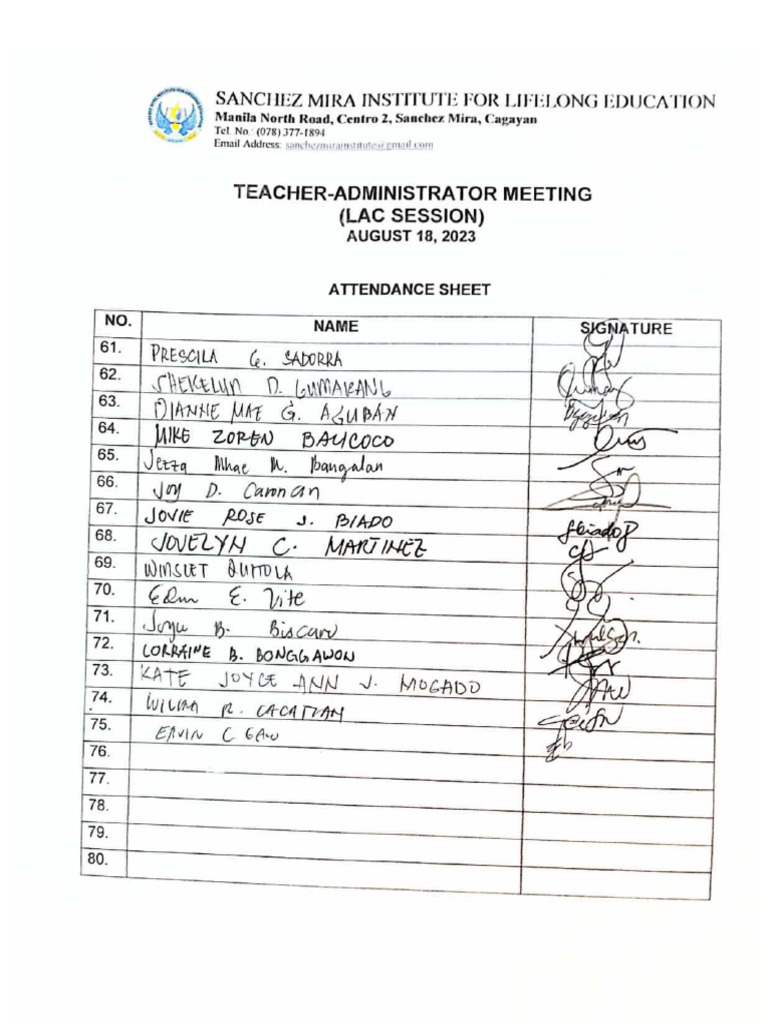 SANCHEZ MIRA INSTITUTE FOR LIFELONG EDUCATION
Manila North Road, Centro 2, Sanchez Mira, Cagayan
Tel. No.: (078) 377-1894
Email Address: sanchezmirainstitute@gmail.com
TEACHER-ADMINISTRATOR MEETING
(LAC SESSION)
AUGUST 18, 2023
ATTENDANCE SHEET
NO. NAME SIGNATURE
61. PRESCILA G. SADORRA
62. SHEKELYN D. GUMARANG
63. DIANNE MAE G. AGUBAN
64. MIKE ZOREN BAUCOCO
65. Jezza Mhae M. Bangalan
66. Joy D. Caronan
67. JOVIE ROSE J. BIADO
68. JOVELYN C. MARTINEZ
69. WINSLET
70. E. Vite
71. B.
72. LORRAINE B. BONGGAWON
73. KATE JOYCE ANN J. MOGADO
74. WILMA R. CACATIAN
75. ERVIN C GAW
76.
77.
78.
79.
80.